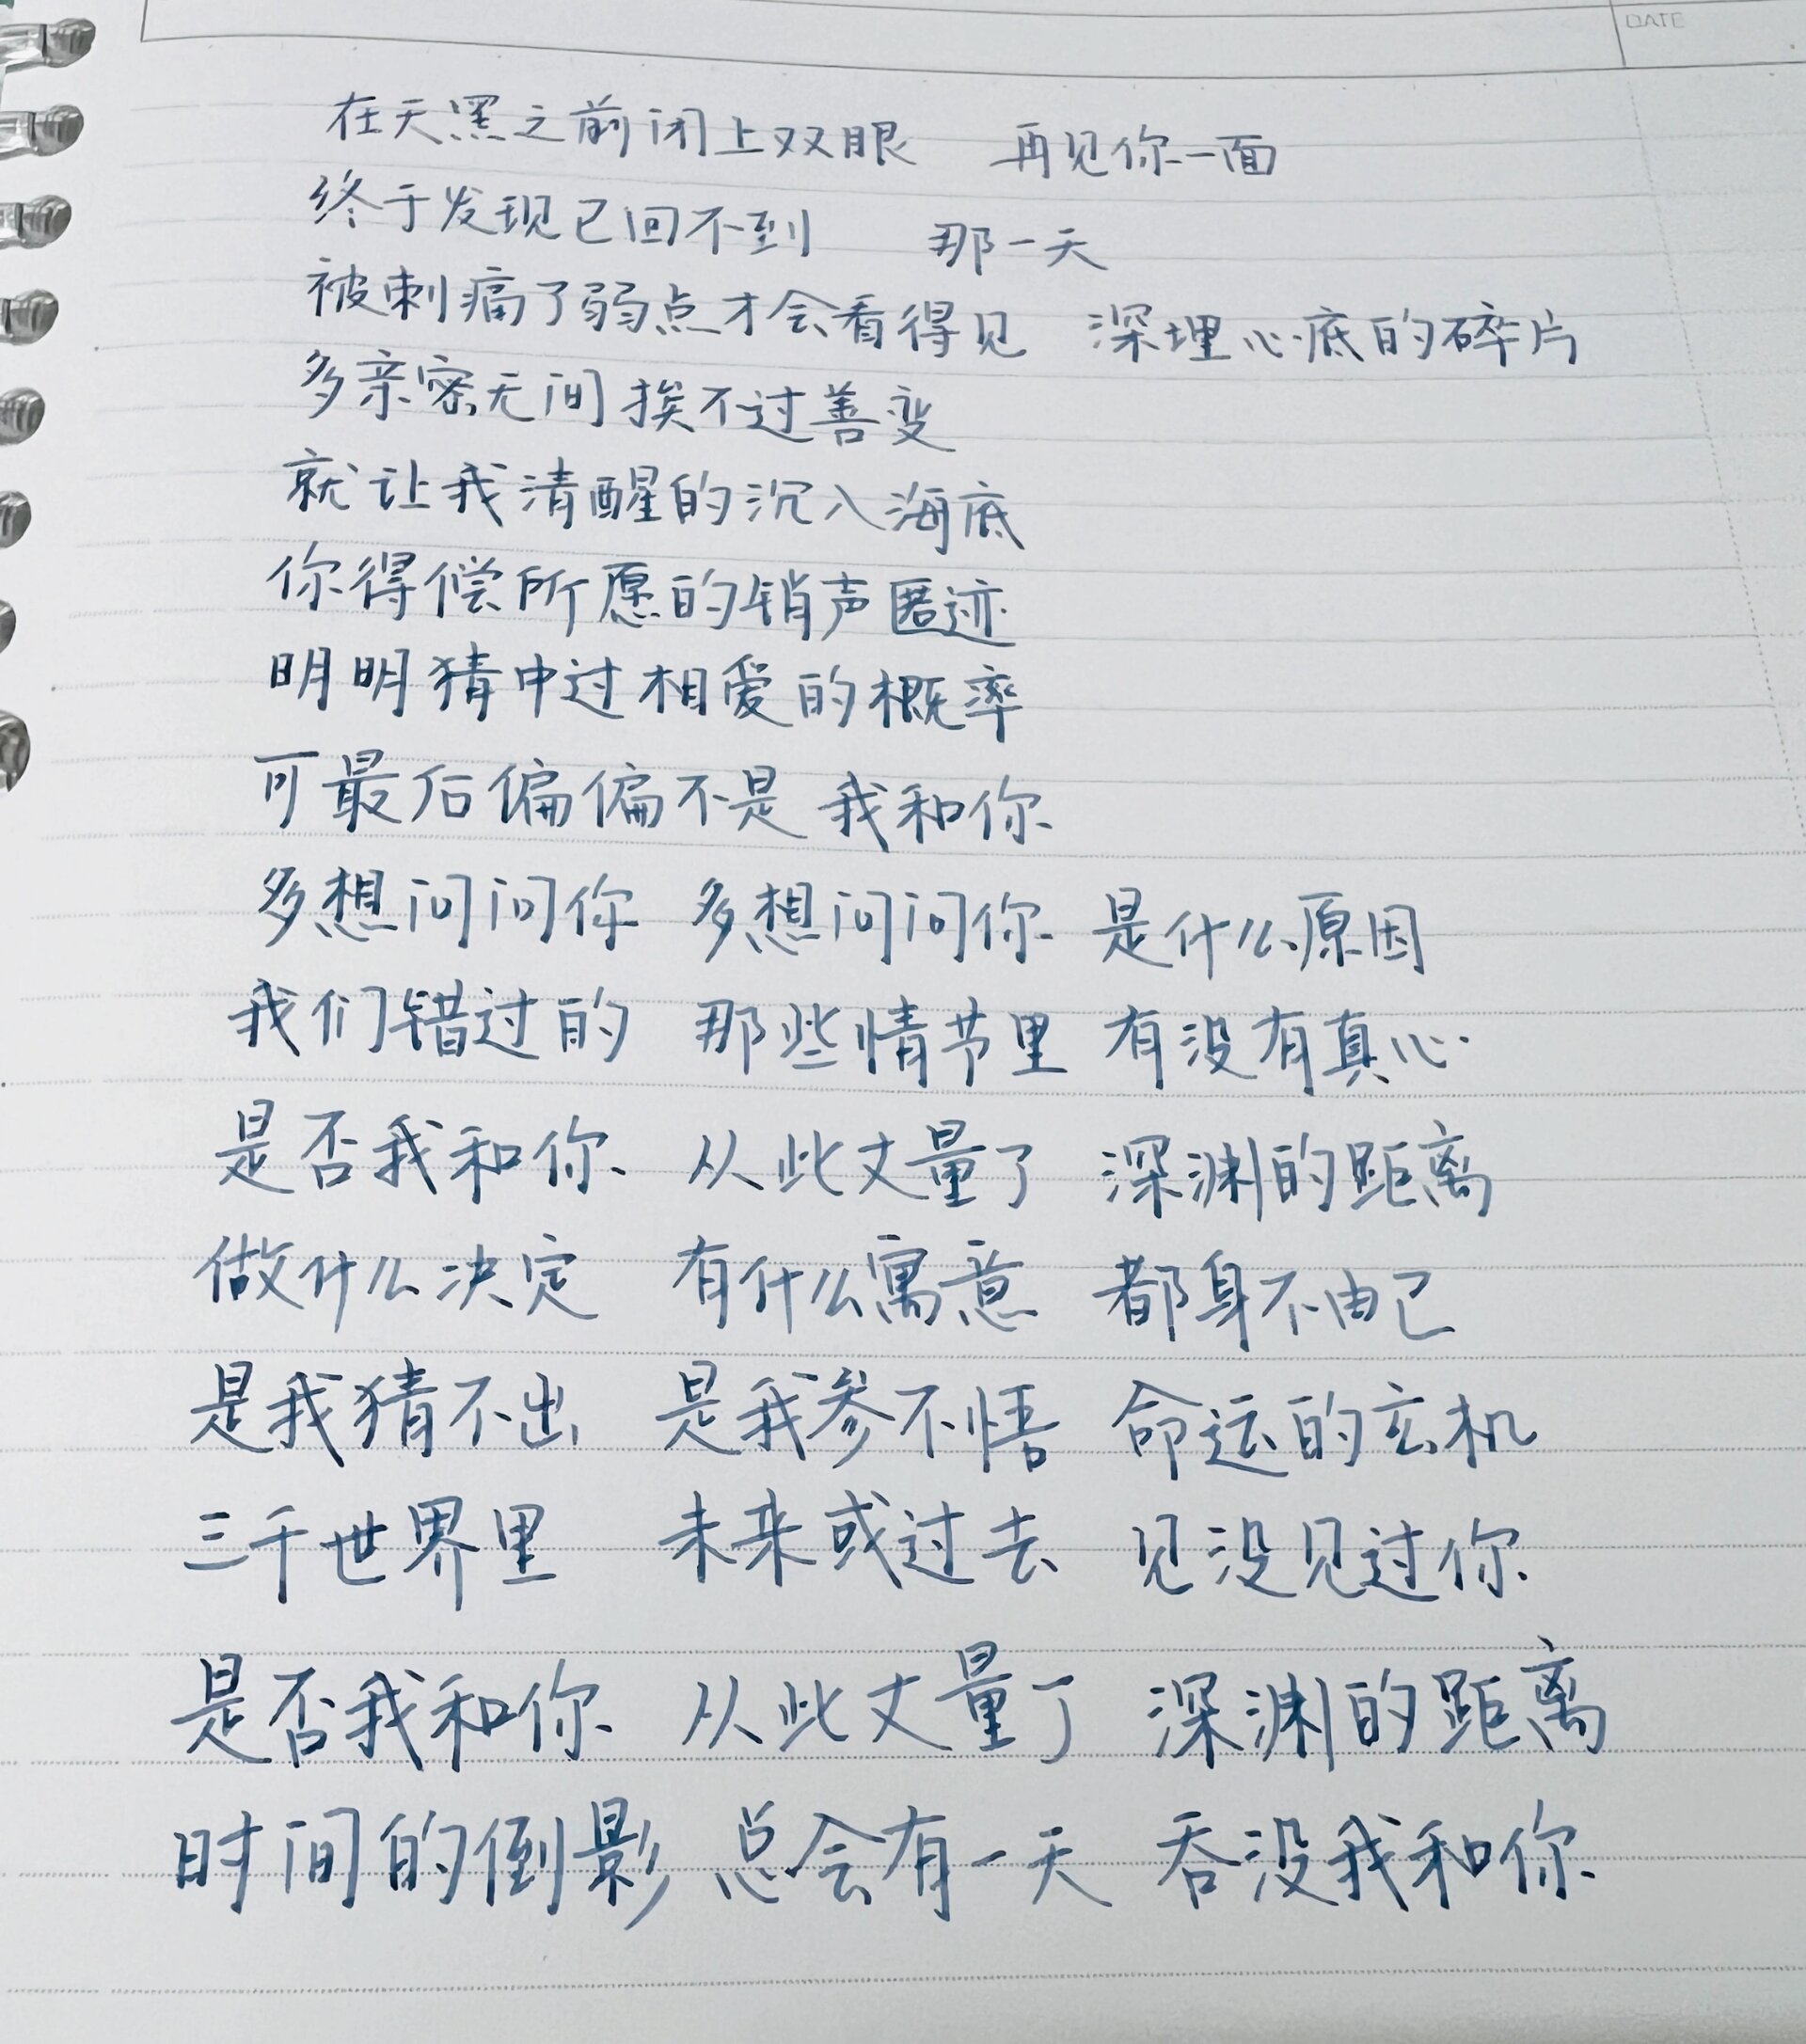 DATE
在天黑之前闭上双眼 再见你一面
终于发现已回不到 那一天
被刺痛了弱点才会看得见 深埋心底的碎片
多亲密无间挨不过善变
就让我清醒的沉入海底
你得偿所愿的销声匿迹
明明猜中过相爱的概率
可最后偏偏不是 我和你
多想问问你 多想问问你 是什么原因
我们错过的 那些情节里 有没有真心
是否我和你 从此丈量了 深渊的距离
做什么决定 有什么寓意 都身不由己
是我猜不出 是我参不悟 命运的玄机
三千世界里 未来或过去 见没见过你
是否我和你 从此丈量了 深渊的距离
时间的倒影 总会有一天 吞没我和你